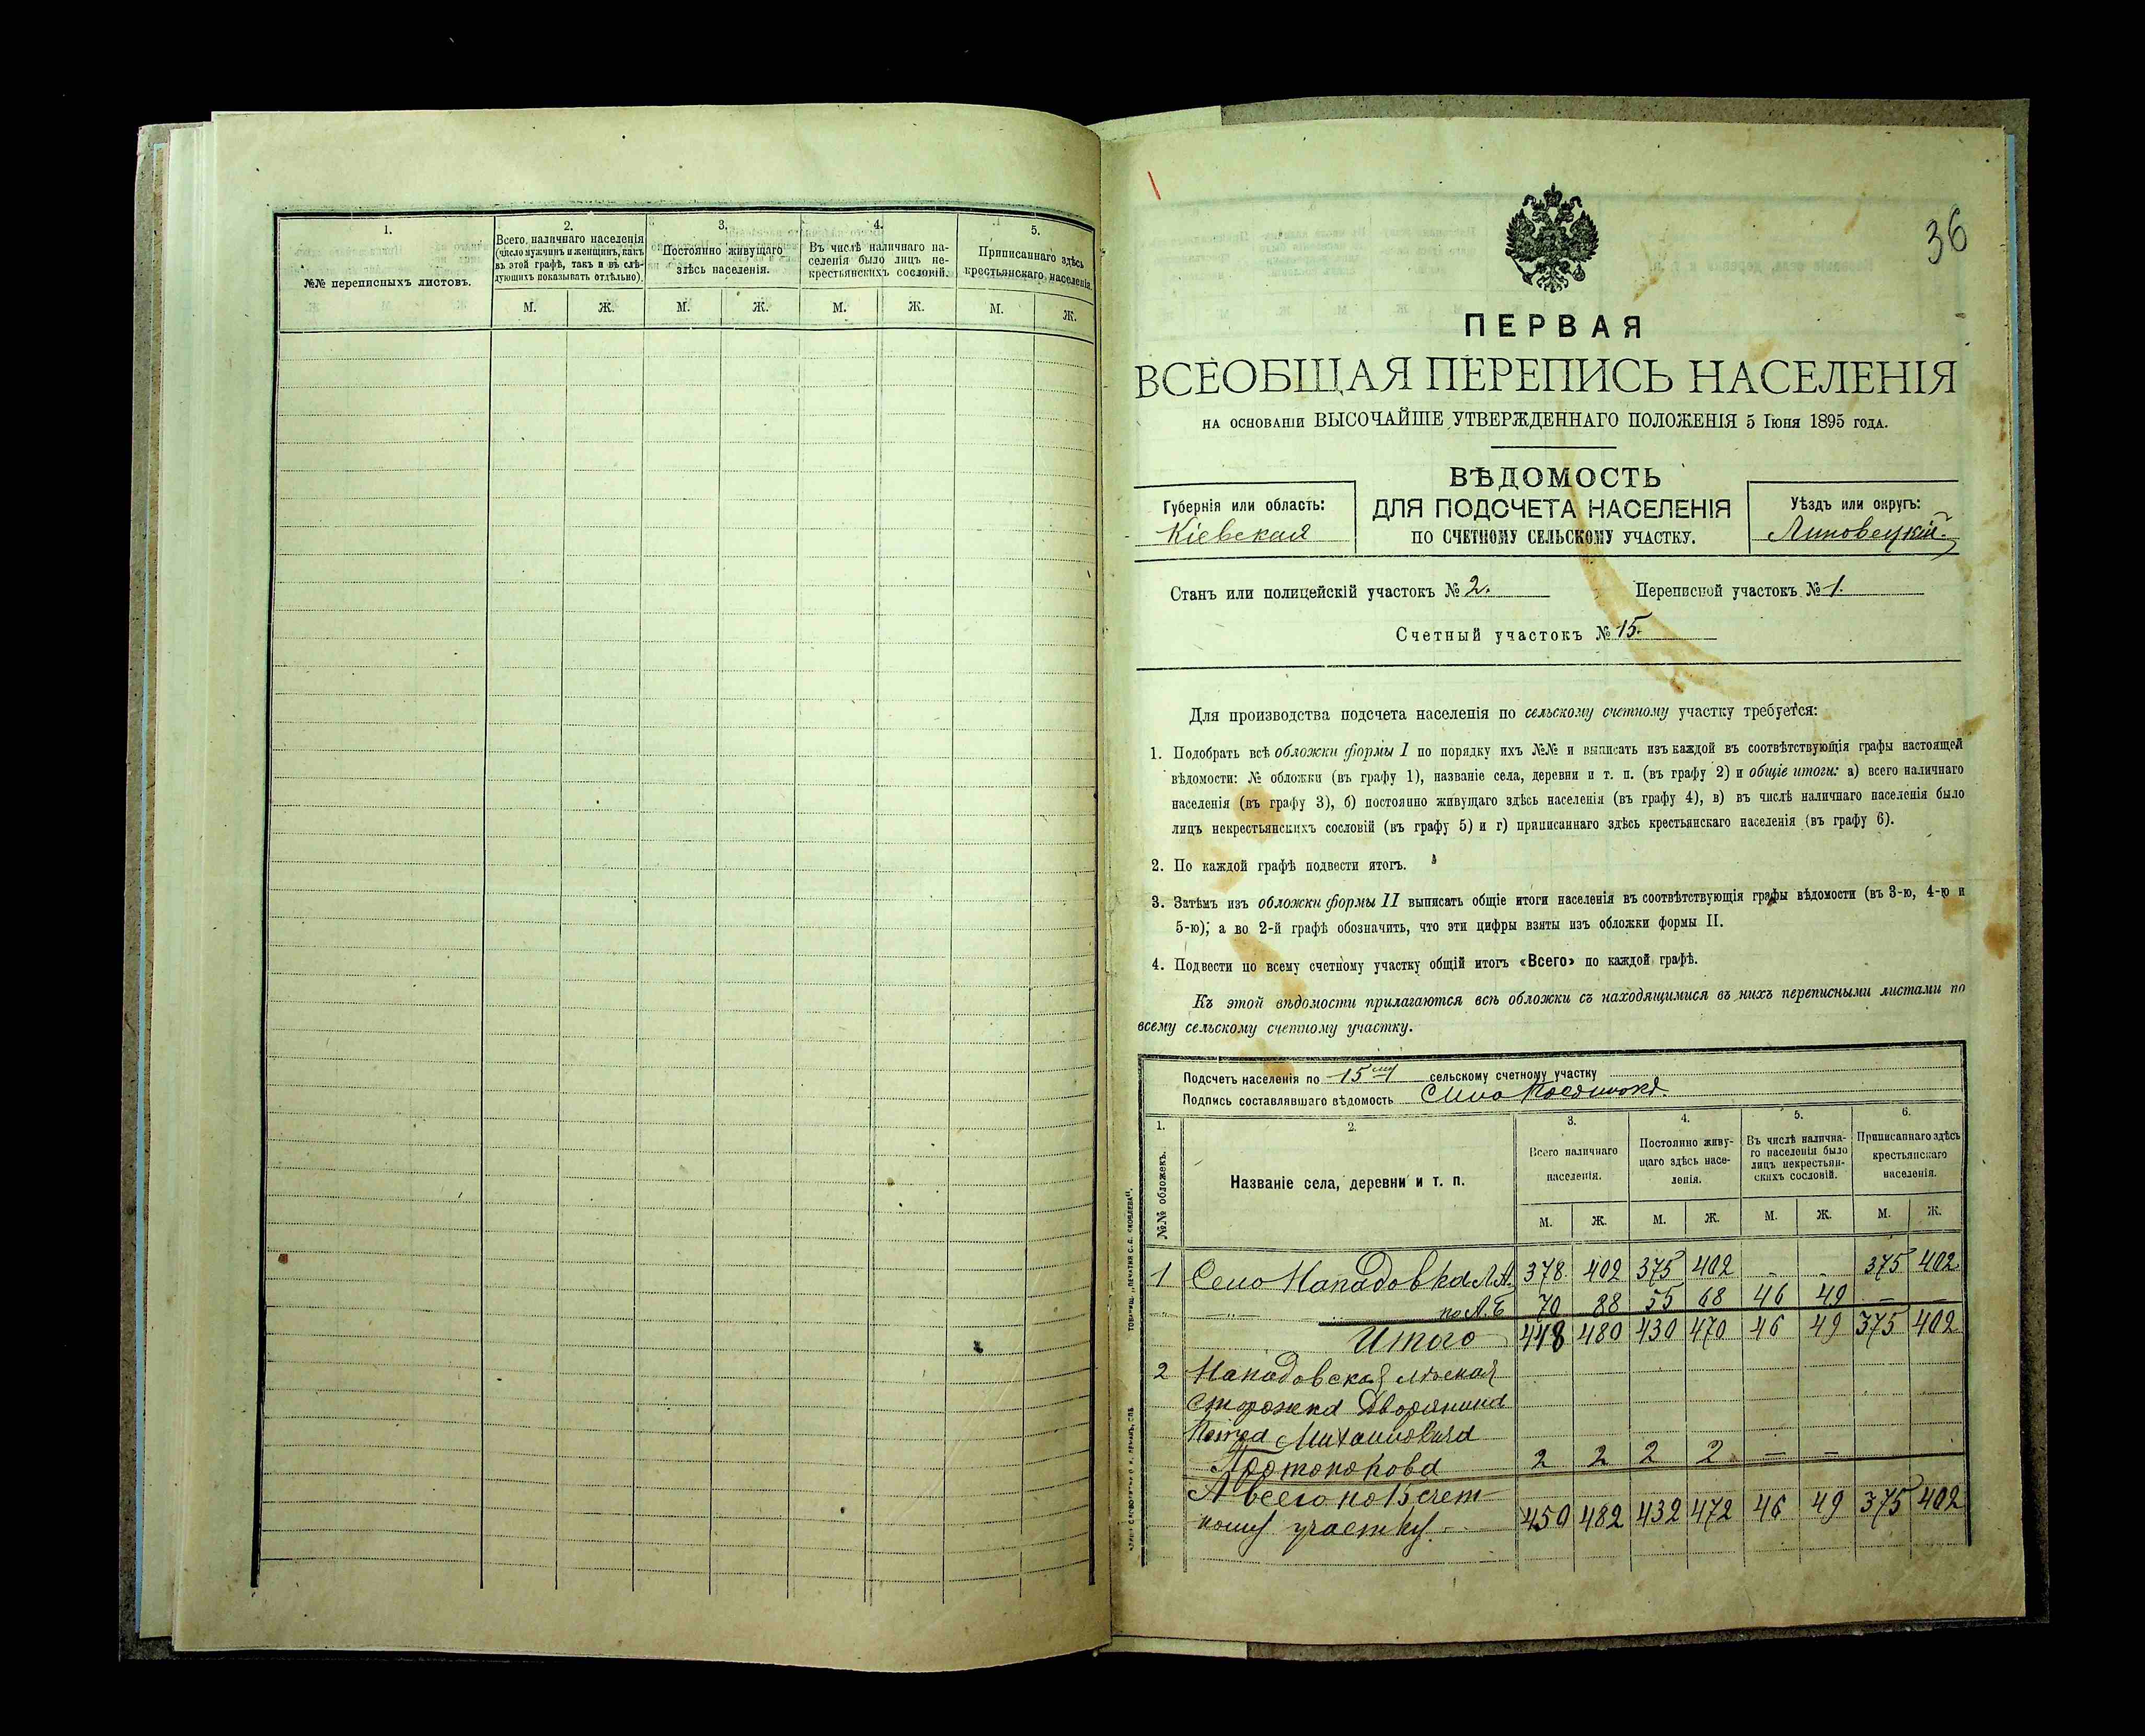 1.
№№ переписныхъ листовъ.
2.
Всего наличнаго населенія
(число мужчинъ и женщинъ, какъ
въ этой графѣ, такъ и въ слѣ-
дующихъ показывать отдѣльно).
3.
Постоянно живущаго
здѣсь населенія.
4.
Въ числѣ наличнаго на-
селенія было лицъ не-
крестьянскихъ сословій.
5.
Приписаннаго здѣсь
крестьянскаго населенія.
М. Ж. М. Ж. М. Ж. М. Ж.
36
ПЕРВАЯ
ВСЕОБЩАЯ ПЕРЕПИСЬ НАСЕЛЕНІЯ
НА ОСНОВАНІИ ВЫСОЧАЙШЕ УТВЕРЖДЕННАГО ПОЛОЖЕНІЯ 5 Іюня 1895 ГОДА.
ВѢДОМОСТЬ
ДЛЯ ПОДСЧЕТА НАСЕЛЕНІЯ
ПО СЧЕТНОМУ СЕЛЬСКОМУ УЧАСТКУ.
Губернія или область:
Кіевская
Уѣздъ или округъ:
Липовецкій
Станъ или полицейскій участокъ № 2. Переписной участокъ № 1.
Счетный участокъ № 15.
Для производства подсчета населенія по сельскому счетному участку требуется:
1. Подобрать всѣ обложки формы I по порядку ихъ №№ и выписать изъ каждой въ соотвѣтствующія графы настоящей
вѣдомости: № обложки (въ графу 1), названіе села, деревни и т. п. (въ графу 2) и общіе итоги: а) всего наличнаго
населенія (въ графу 3), б) постоянно живущаго здѣсь населенія (въ графу 4), в) въ числѣ наличнаго населенія было
лицъ некрестьянскихъ сословій (въ графу 5) и г) приписаннаго здѣсь крестьянскаго населенія (въ графу 6).
2. По каждой графѣ подвести итогъ.
3. Затѣмъ изъ обложки формы II выписать общіе итоги населенія въ соотвѣтствующія графы вѣдомости (въ 3-ю, 4-ю и
5-ю); а во 2-й графѣ обозначить, что эти цифры взяты изъ обложки формы II.
4. Подвести по всему счетному участку общій итогъ «Всего» по каждой графѣ.
Къ этой вѣдомости прилагаются всѣ обложки съ находящимися въ нихъ переписными листами по
всему сельскому счетному участку.
Подсчетъ населенія по 15му сельскому счетному участку
Подпись составлявшаго вѣдомость
1.
№№ обложекъ.
2.
Названіе села, деревни и т. п.
3.
Всего наличнаго
населенія.
4.
Постоянно живу-
щаго здѣсь насе-
ленія.
5.
Въ числѣ налична-
го населенія было
лицъ некрестьян-
скихъ сословій.
6.
Приписаннаго здѣсь
крестьянскаго
населенія.
М. Ж. М. Ж. М. Ж. М. Ж.
1 Село Нападовка 378 402 375 402 - - 375 402
по 70 88 55 68 46 49 - -
Итого 448 480 430 470 46 49 375 402
2 Нападовская лѣсная
сторожка Дворянина
Петра Михаиловича
Протопопова 2 2 2 2 - -
А всего по 15 счет-
ному участку. 450 482 432 472 46 49 375 402